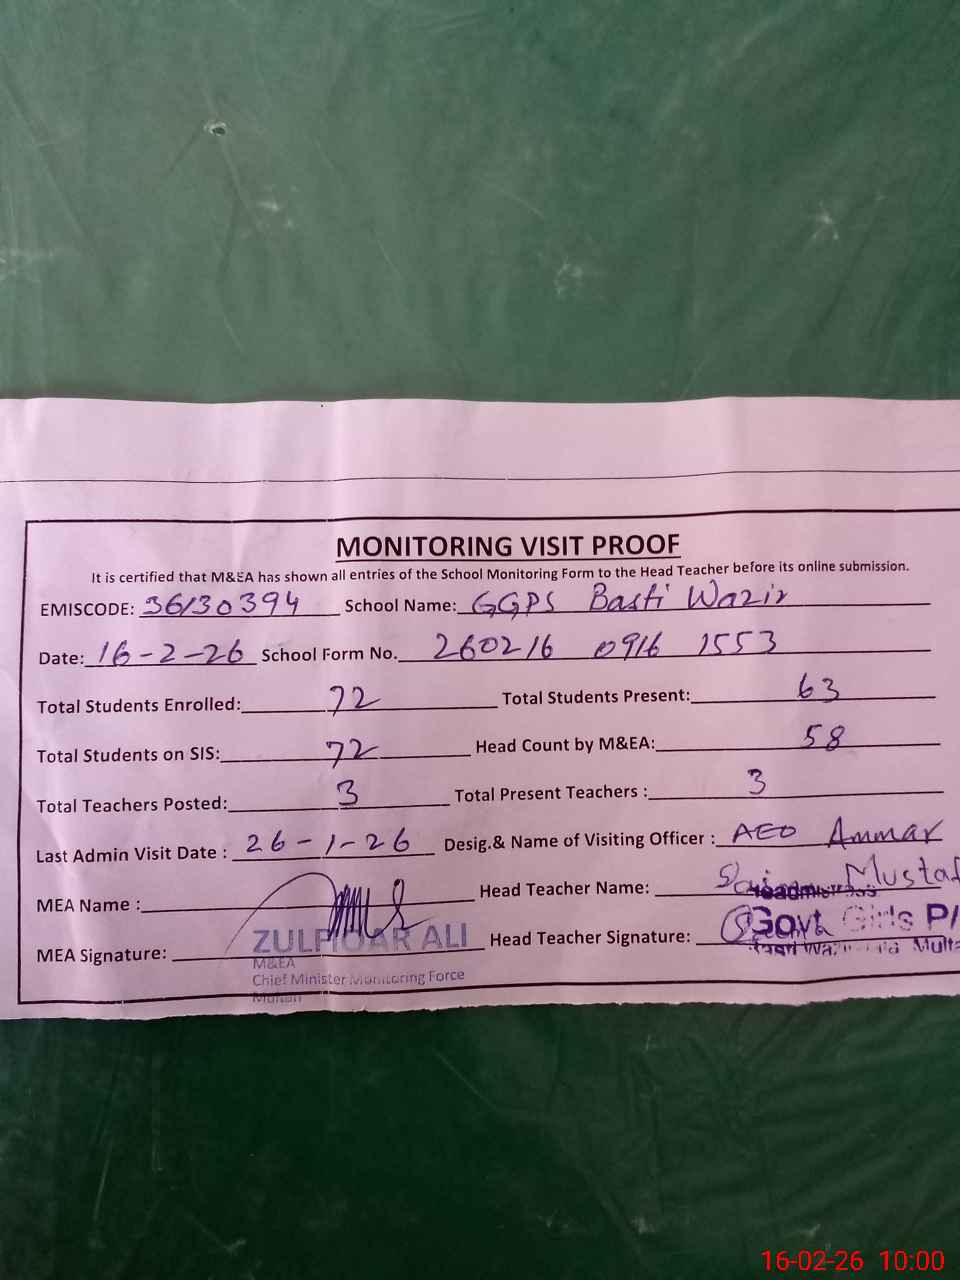 MONITORING VISIT PROOF
It is certified that M&EA has shown all entries of the School Monitoring Form to the Head Teacher before its online submission.
EMISCODE: 36130394 School Name: GGPS Basti Wazir
Date: 16-2-26 School Form No. 260216 0916 1553
Total Students Enrolled: 72 Total Students Present: 63
Total Students on SIS: 72 Head Count by M&EA: 58
Total Teachers Posted: 3 Total Present Teachers : 3
Last Admin Visit Date : 26-1-26 Desig.& Name of Visiting Officer : AEO Ammar
MEA Name : Head Teacher Name: Mustaf
MEA Signature: Head Teacher Signature:
ZULFIQAR ALI
M&EA
Chief Minister Monitoring Force
Multan
Govt Girls P/
16-02-26 10:00